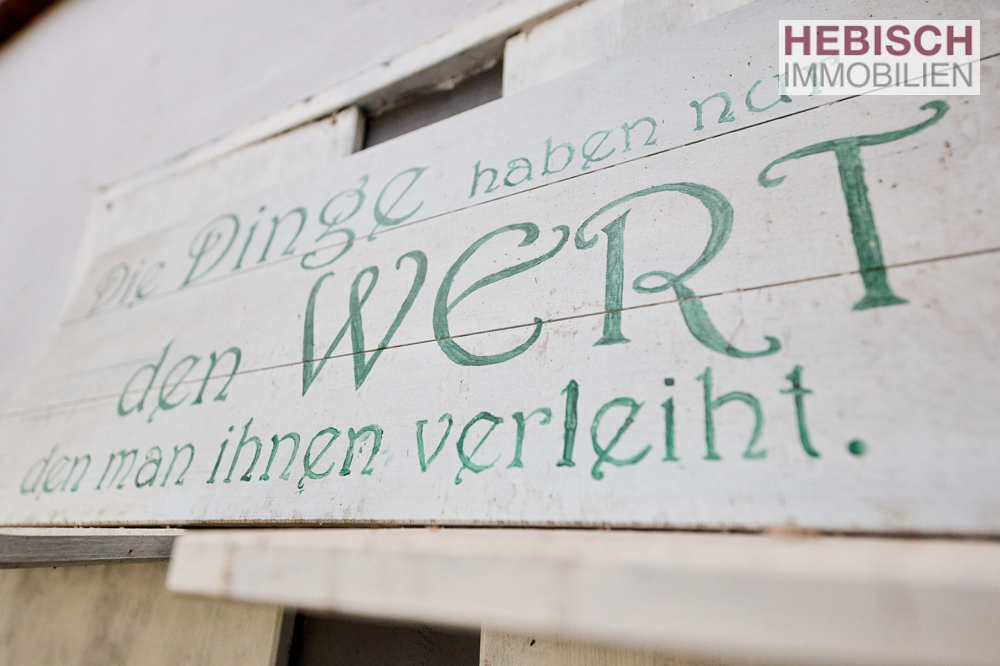 HEBISCH
IMMOBILIEN
Die Dinge haben nur
den WERT
den man ihnen verleiht.